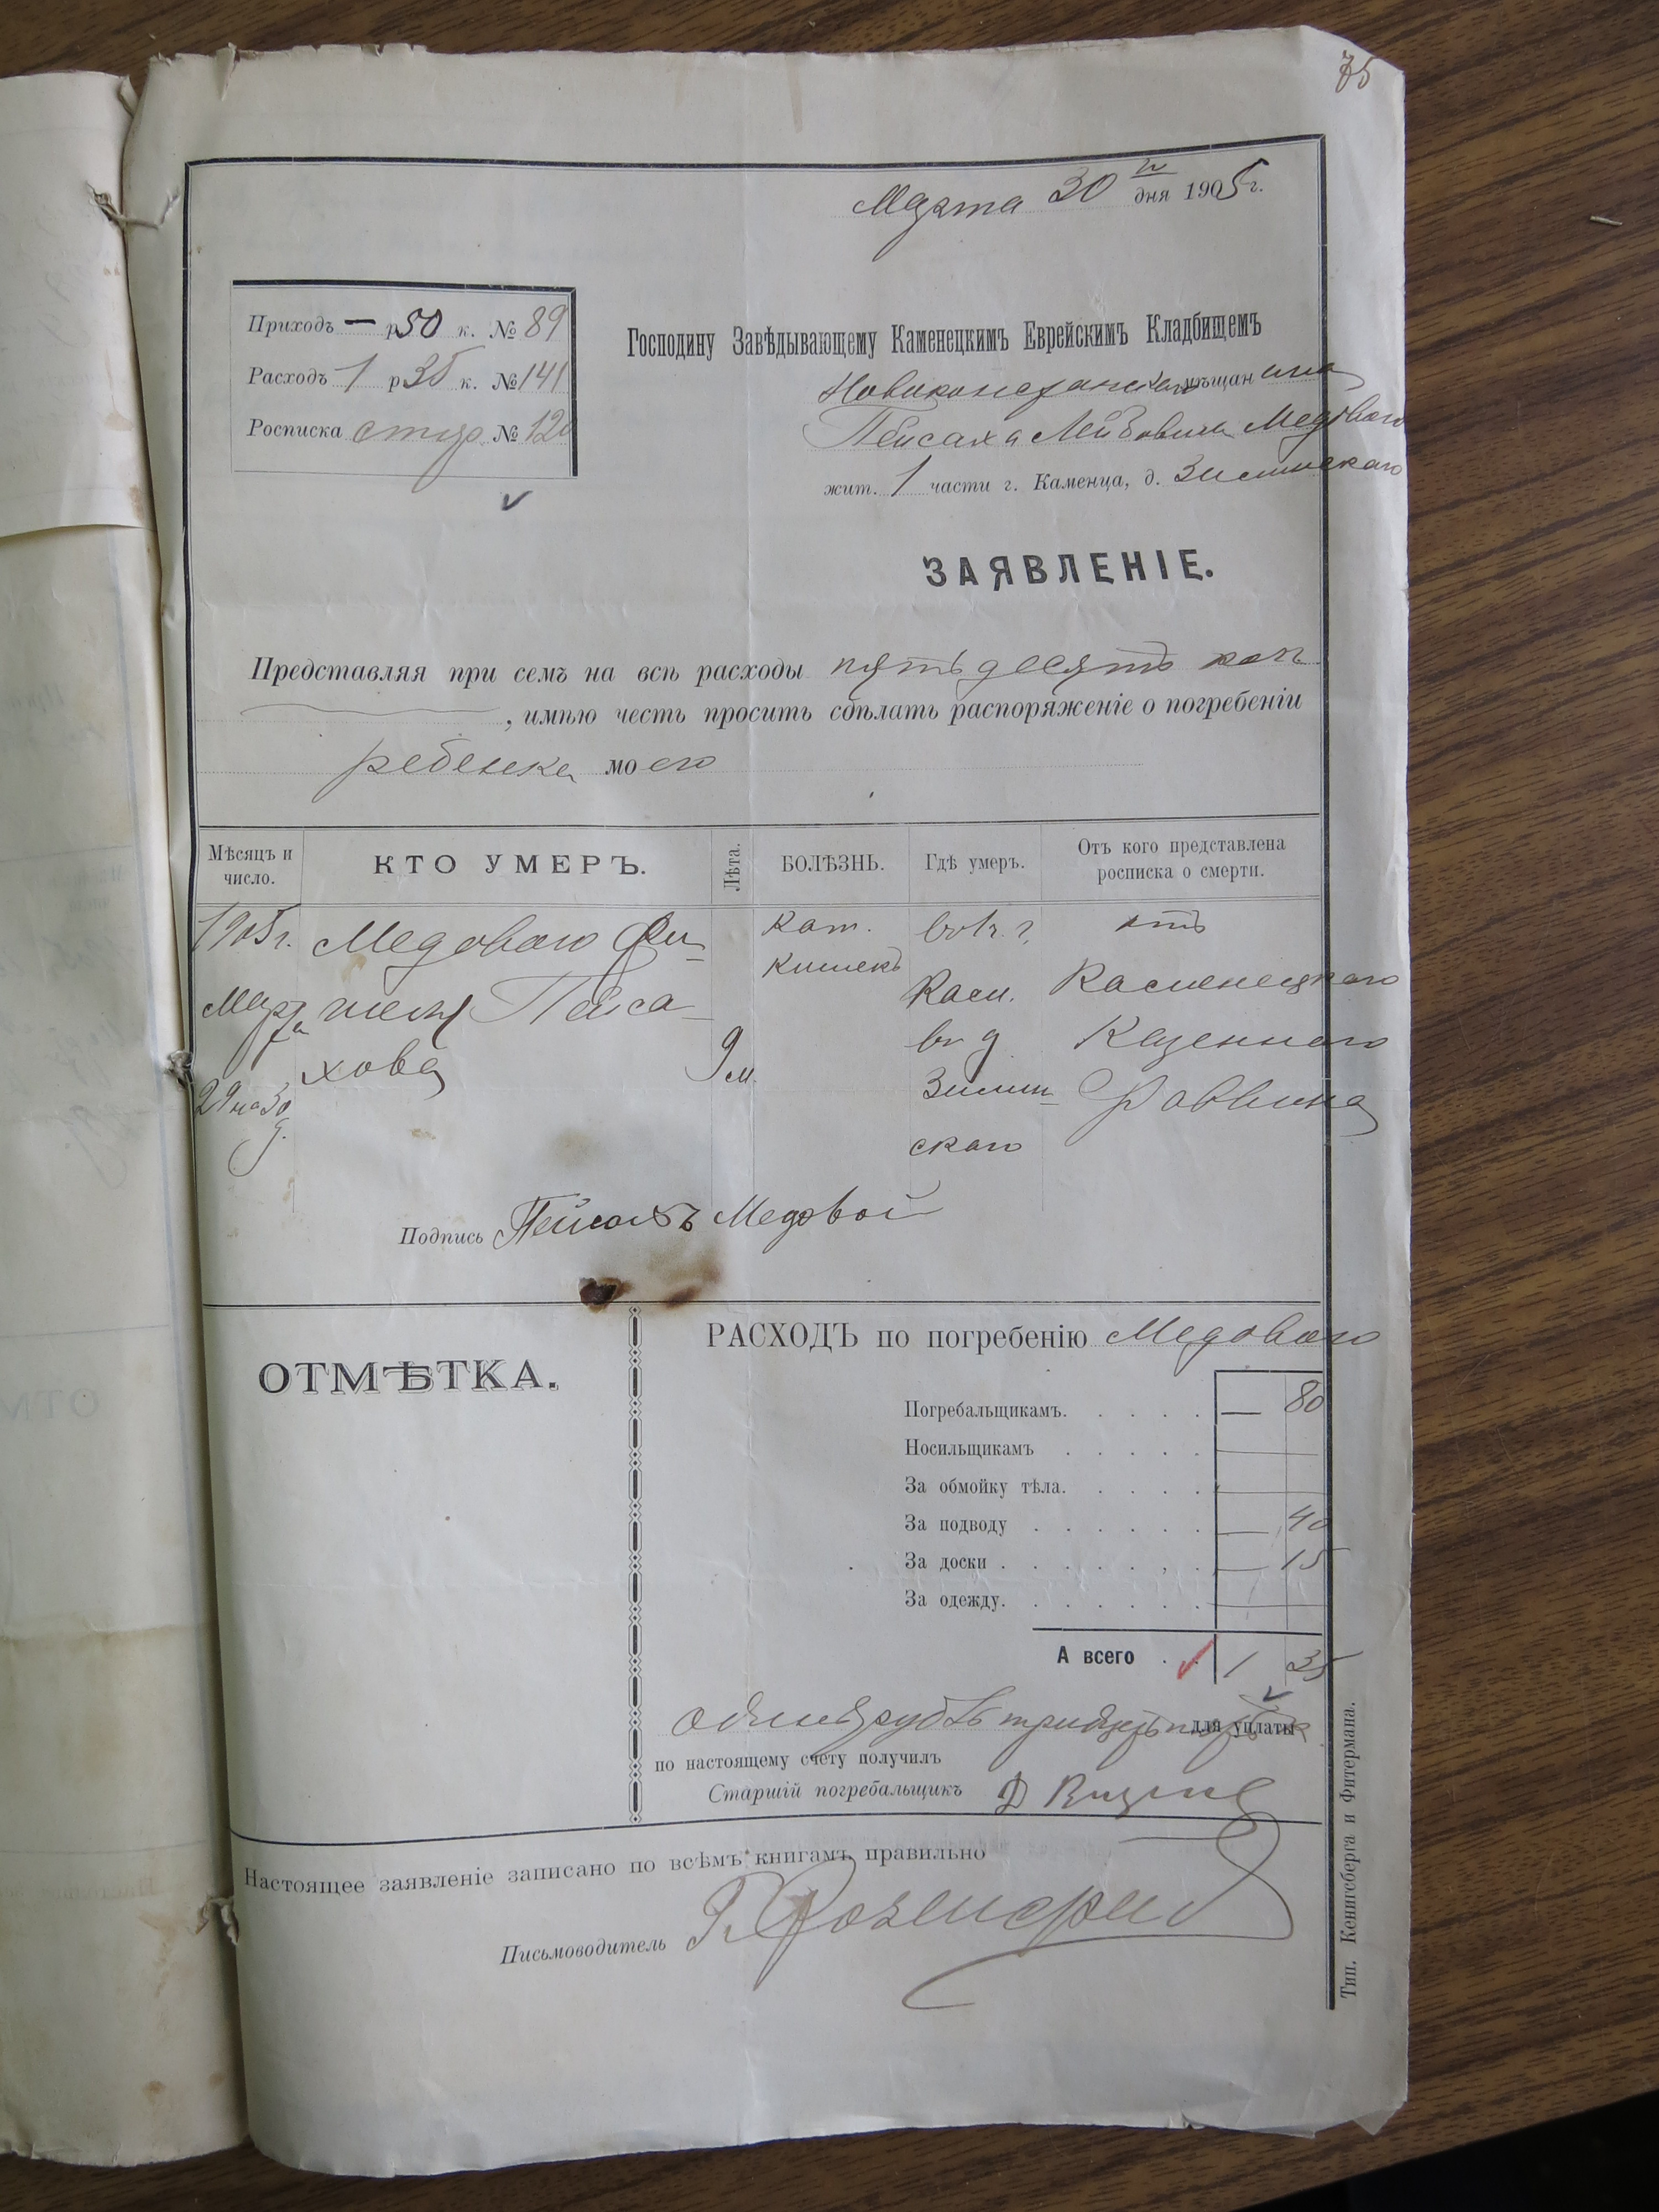 75
Марта 30 го дня 1905 г.
Приходъ — р 50 к. № 89
Расходъ 1 р 35 к. № 141
Росписка № 120
Господину Завѣдывающему Каменецкимъ Еврейскимъ Кладбищемъ
мѣщанина
Пейсаха Лейбовича Медоваго
жит. 1 части г. Каменца, д. Зиминскаго
ЗАЯВЛЕНІЕ.
Представляя при семъ на всѣ расходы пятьдесятъ коп
, имѣю честь просить сдѣлать распоряженіе о погребеніи
ребенка моего
Мѣсяцъ и число.
КТО УМЕРЪ.
Лѣта.
БОЛѢЗНЬ.
Гдѣ умеръ.
Отъ кого представлена росписка о смерти.
1905 г. Медоваго Фи- Кат. въ г. отъ
Марта шеля Пейса- кишекъ Кам. Каменецкаго
29 на 30 хова 9 м. въ д Казеннаго
Зимин- Раввина
скаго
Подпись Пейсахъ Медовой
ОТМѢТКА.
РАСХОДЪ по погребенію Медоваго
Погребальщикамъ. — 80
Носильщикамъ
За обмойку тѣла.
За подводу — 40
За доски — 15
За одежду.
А всего 1 35
одинъ рубль тридцать пять к для уплаты
по настоящему счету получилъ
Старшій погребальщикъ
Настоящее заявленіе записано по всѣмъ книгамъ правильно
Письмоводитель
Тип. Кенигсберга и Фитермана.